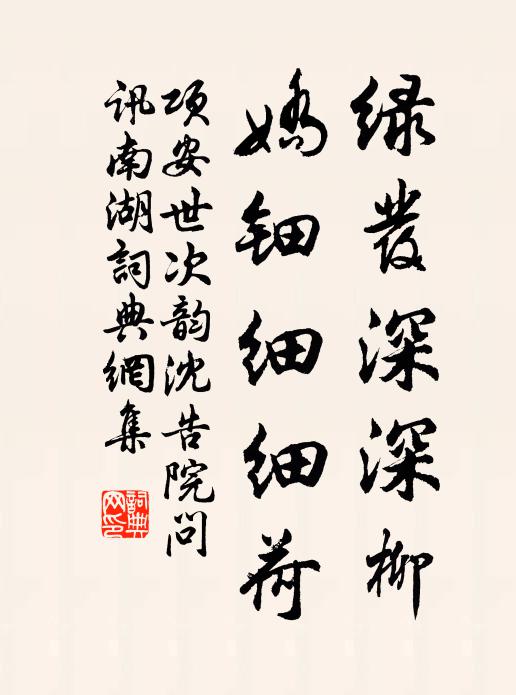 绿发深深柳
娇钿细细荷
项安世次韵沈告院问
讯南湖詞典網集
詞典
网印